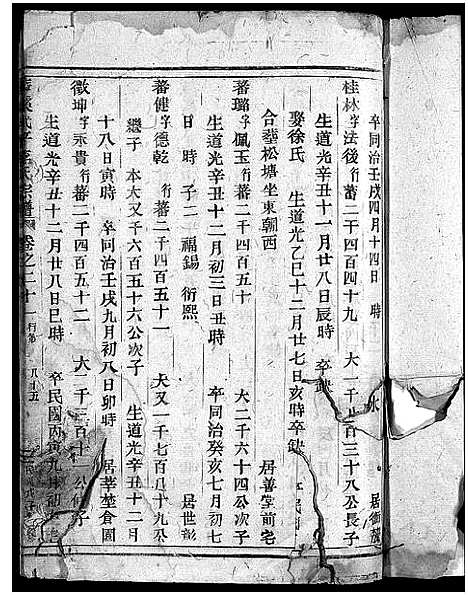 卒同治壬戌四月十四日　時　水　居衝龍
桂林字法後行蕃二千四百四十九　大一千百三十八公長子
生道光辛丑十一月廿八日辰時　卒缺
娶徐氏　生道光乙巳十二月廿七日亥時卒缺
合塟松塘坐東朝西　居善堂前宅
蕃璐字佩玉行蕃二千四百五十　大二千六十四公次子
生道光辛丑十二月初三日丑時　卒同治癸亥七月初七
日　時　子二　福錫　衍熙　居世彰
蕃健字德乾行蕃二千四百五十一　大又一千七百八十九公
繼子　本大又千六百五十六公次子　生道光辛丑十二月
十八日寅時　卒同治壬戌九月初八日卯時　居莘塋倉園
徵坤字永貴行蕃二千四百五十二　大一千三百十公子
生道光辛丑十二月廿八日巳時　卒民國丙寅九月初
宗譜　卷之二十一　行第　八十五